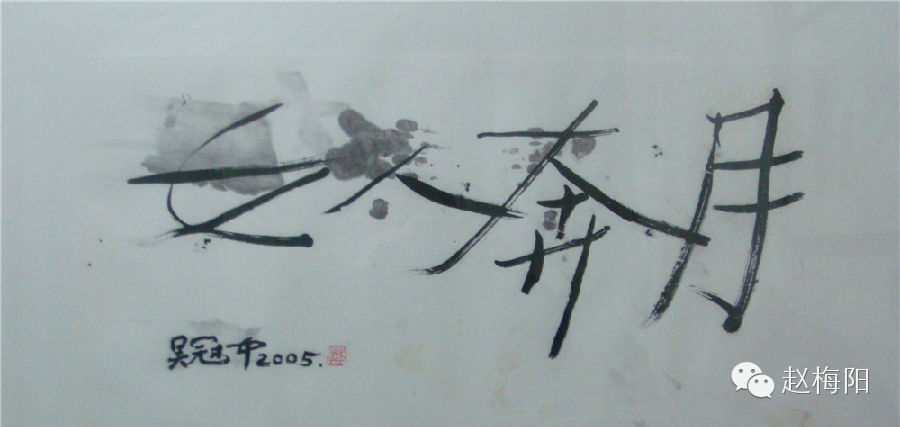 女人奔月
吴冠中2005.
赵梅阳